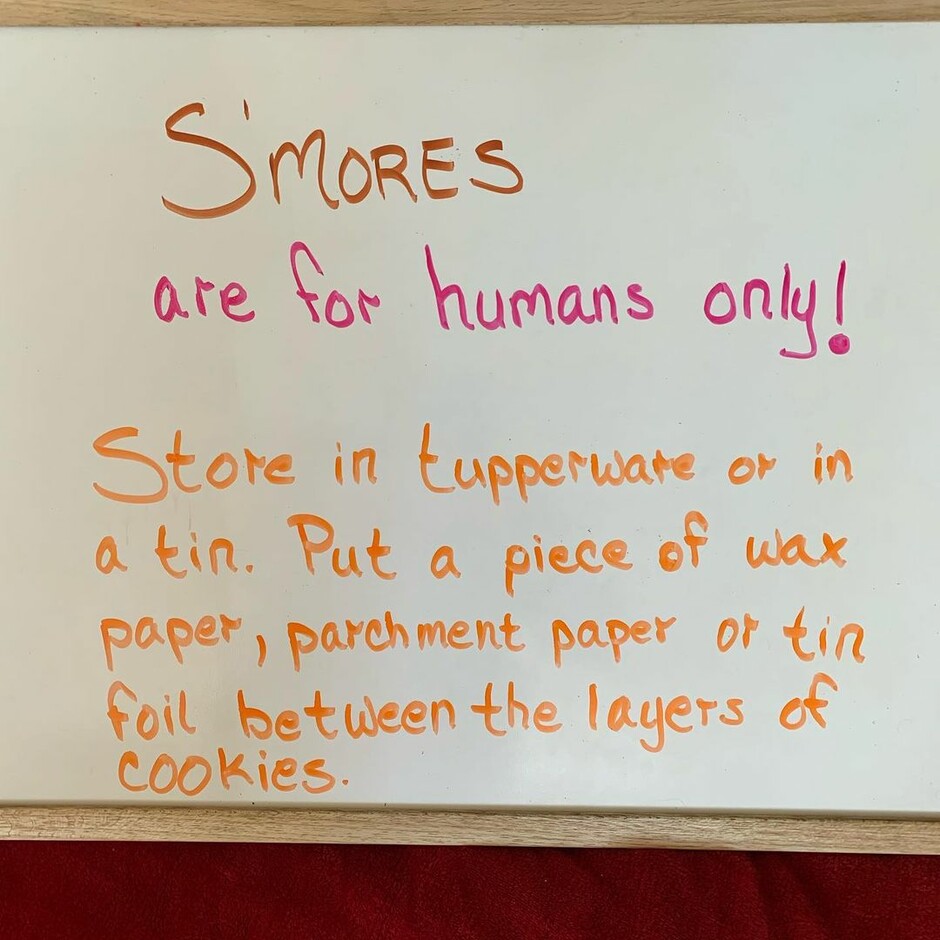 S'MORES
are for humans only!
Store in tupperware or in
a tin. Put a piece of wax
paper, parchment paper or tin
foil between the layers of
cookies.